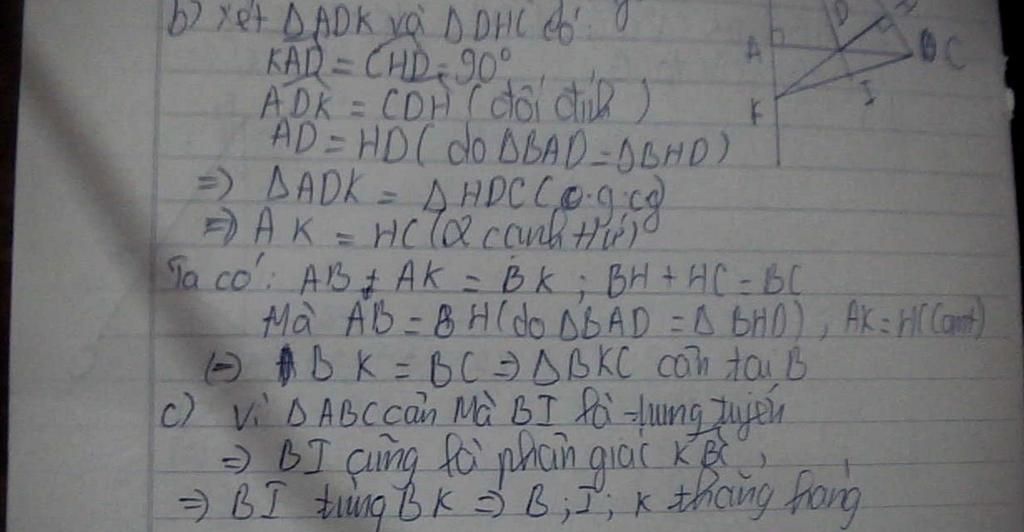 b) xét ΔADK và ΔDHC có:
KAD = CHD = 90°
ADK = CDH (đối đỉnh)
AD = HD (do ΔBAD = ΔBHD)
=> ΔADK = ΔHDC (c.g.cg)
=> AK = HC (2 cạnh tứ)
Ta có: AB + AK = BK ; BH + HC = BC
Mà AB = BH (do ΔBAD = ΔBHD), AK = HC (cmt)
(=) BK = BC => ΔBKC cân tại B
c) Vì ΔABC cân Mà BI là trung tuyến
=> BI cũng là phân giác KBC,
=> BI trùng BK => B; I; K thẳng hàng
A
D
H
C
I
K